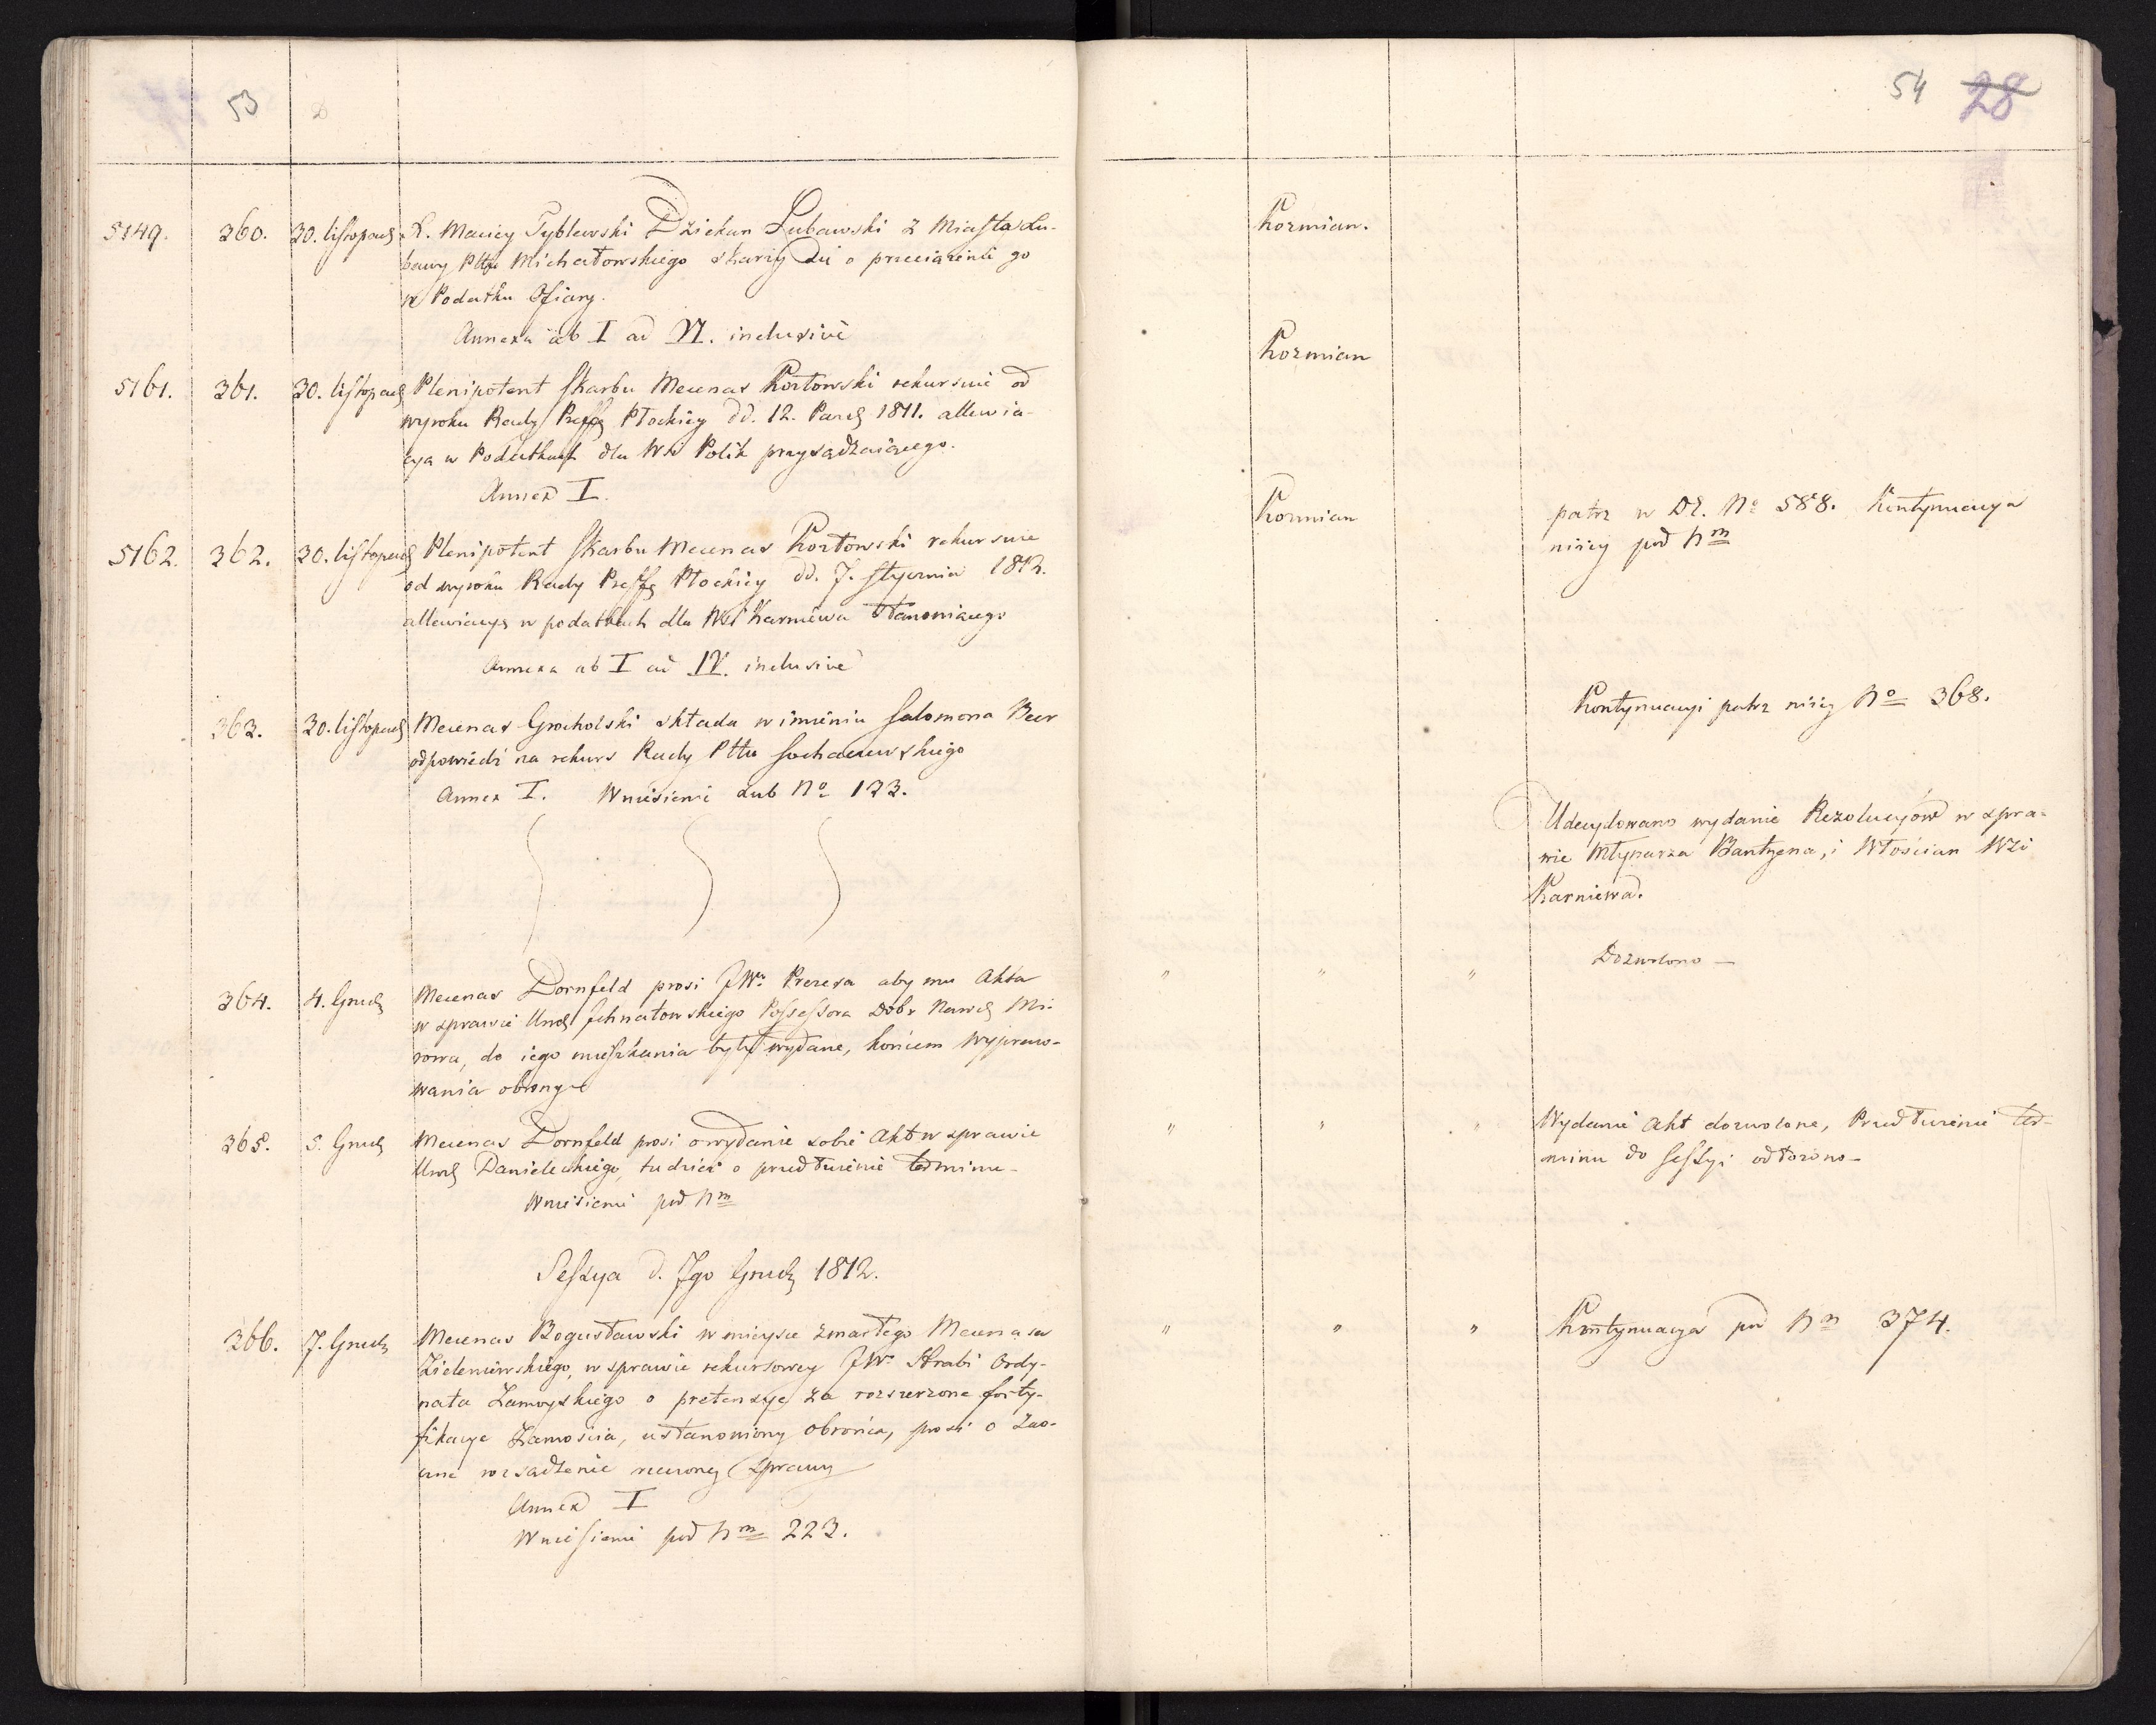 53
5149. 360. 30. listopad X. Maciey Tyblewski Dziekan Lubawski z Miasta Lu-
bawy Pttu Michałowskiego skarży się o przeciążenie go
w Podatku Ofiary.
Annexa ab I ad VI. inclusive
5161. 361. 30. listopad Plenipotent skarbu Mecenas Kozłowski rekursuie od
wyroku Rady Preffy Płockiey dd. 12. Pazd 1811. allewia-
cya w Podatkach dla Wsi Polik przysądzaiącego.
Annex I.
5162. 362. 30. listopad Plenipotent skarbu Mecenas Kozłowski rekursuie
od wyroku Rady Preffy Płockiey dd. 7. stycznia 1812.
allewiacyę w podatkach dla Wsi Karniewa stanowiącego
Annexa ab I ad IV. inclusive
363. 30. listopad Mecenas Grocholski składa w imieniu Salomona Beer
odpowiedź na rekurs Rady Pttu Sochaczewskiego
Annex I. Wniesienie sub No 133.
364. 4. Grud Mecenas Dornfeld prosi JWo Prezesa aby mu Akta
w sprawie Possessora Dobr Mi-
rowa, do iego mieszkania były wydane, końcem wypraco-
wania obrony
365. 5. Grud Mecenas Dornfeld prosi o wydanie sobie Akt w sprawie
Danieleckiego, tudzież o przedłużenie terminu
Wniesienie pod Nm
Sessya d. 7go Grud 1812.
366. 7. Grud Mecenas Bogusławski w mieysce zmarłego Mecenasa
Zieleniewskiego, w sprawie rekursowey JWo Hrabi Ordy-
nata Zamoyskiego o pretensye za rozszerzone forty-
fikacye Zamościa, ustanowiony obrońca, prosi o
rozsądzenie rzeczoney sprawy
Annex I
Wniesienie pod Nm 223.
54 28
Kozmian.
Kozmian
Kozmian patrz w Dz. No 588. Kontynuacya
niżey pod Nm
Kontynuacyi patrz niżey No 368.
Udecydowano wydanie Rezolucyów w spra-
wie Młynarza Bantyena, i Włościan Wsi
Karniewa.
" " " Dozwolono —
" " " Wydanie Akt dozwolone, Przedłużenie ter-
minu do Sessyi odłożono—
" " " Kontynuacya pod Nm 374.